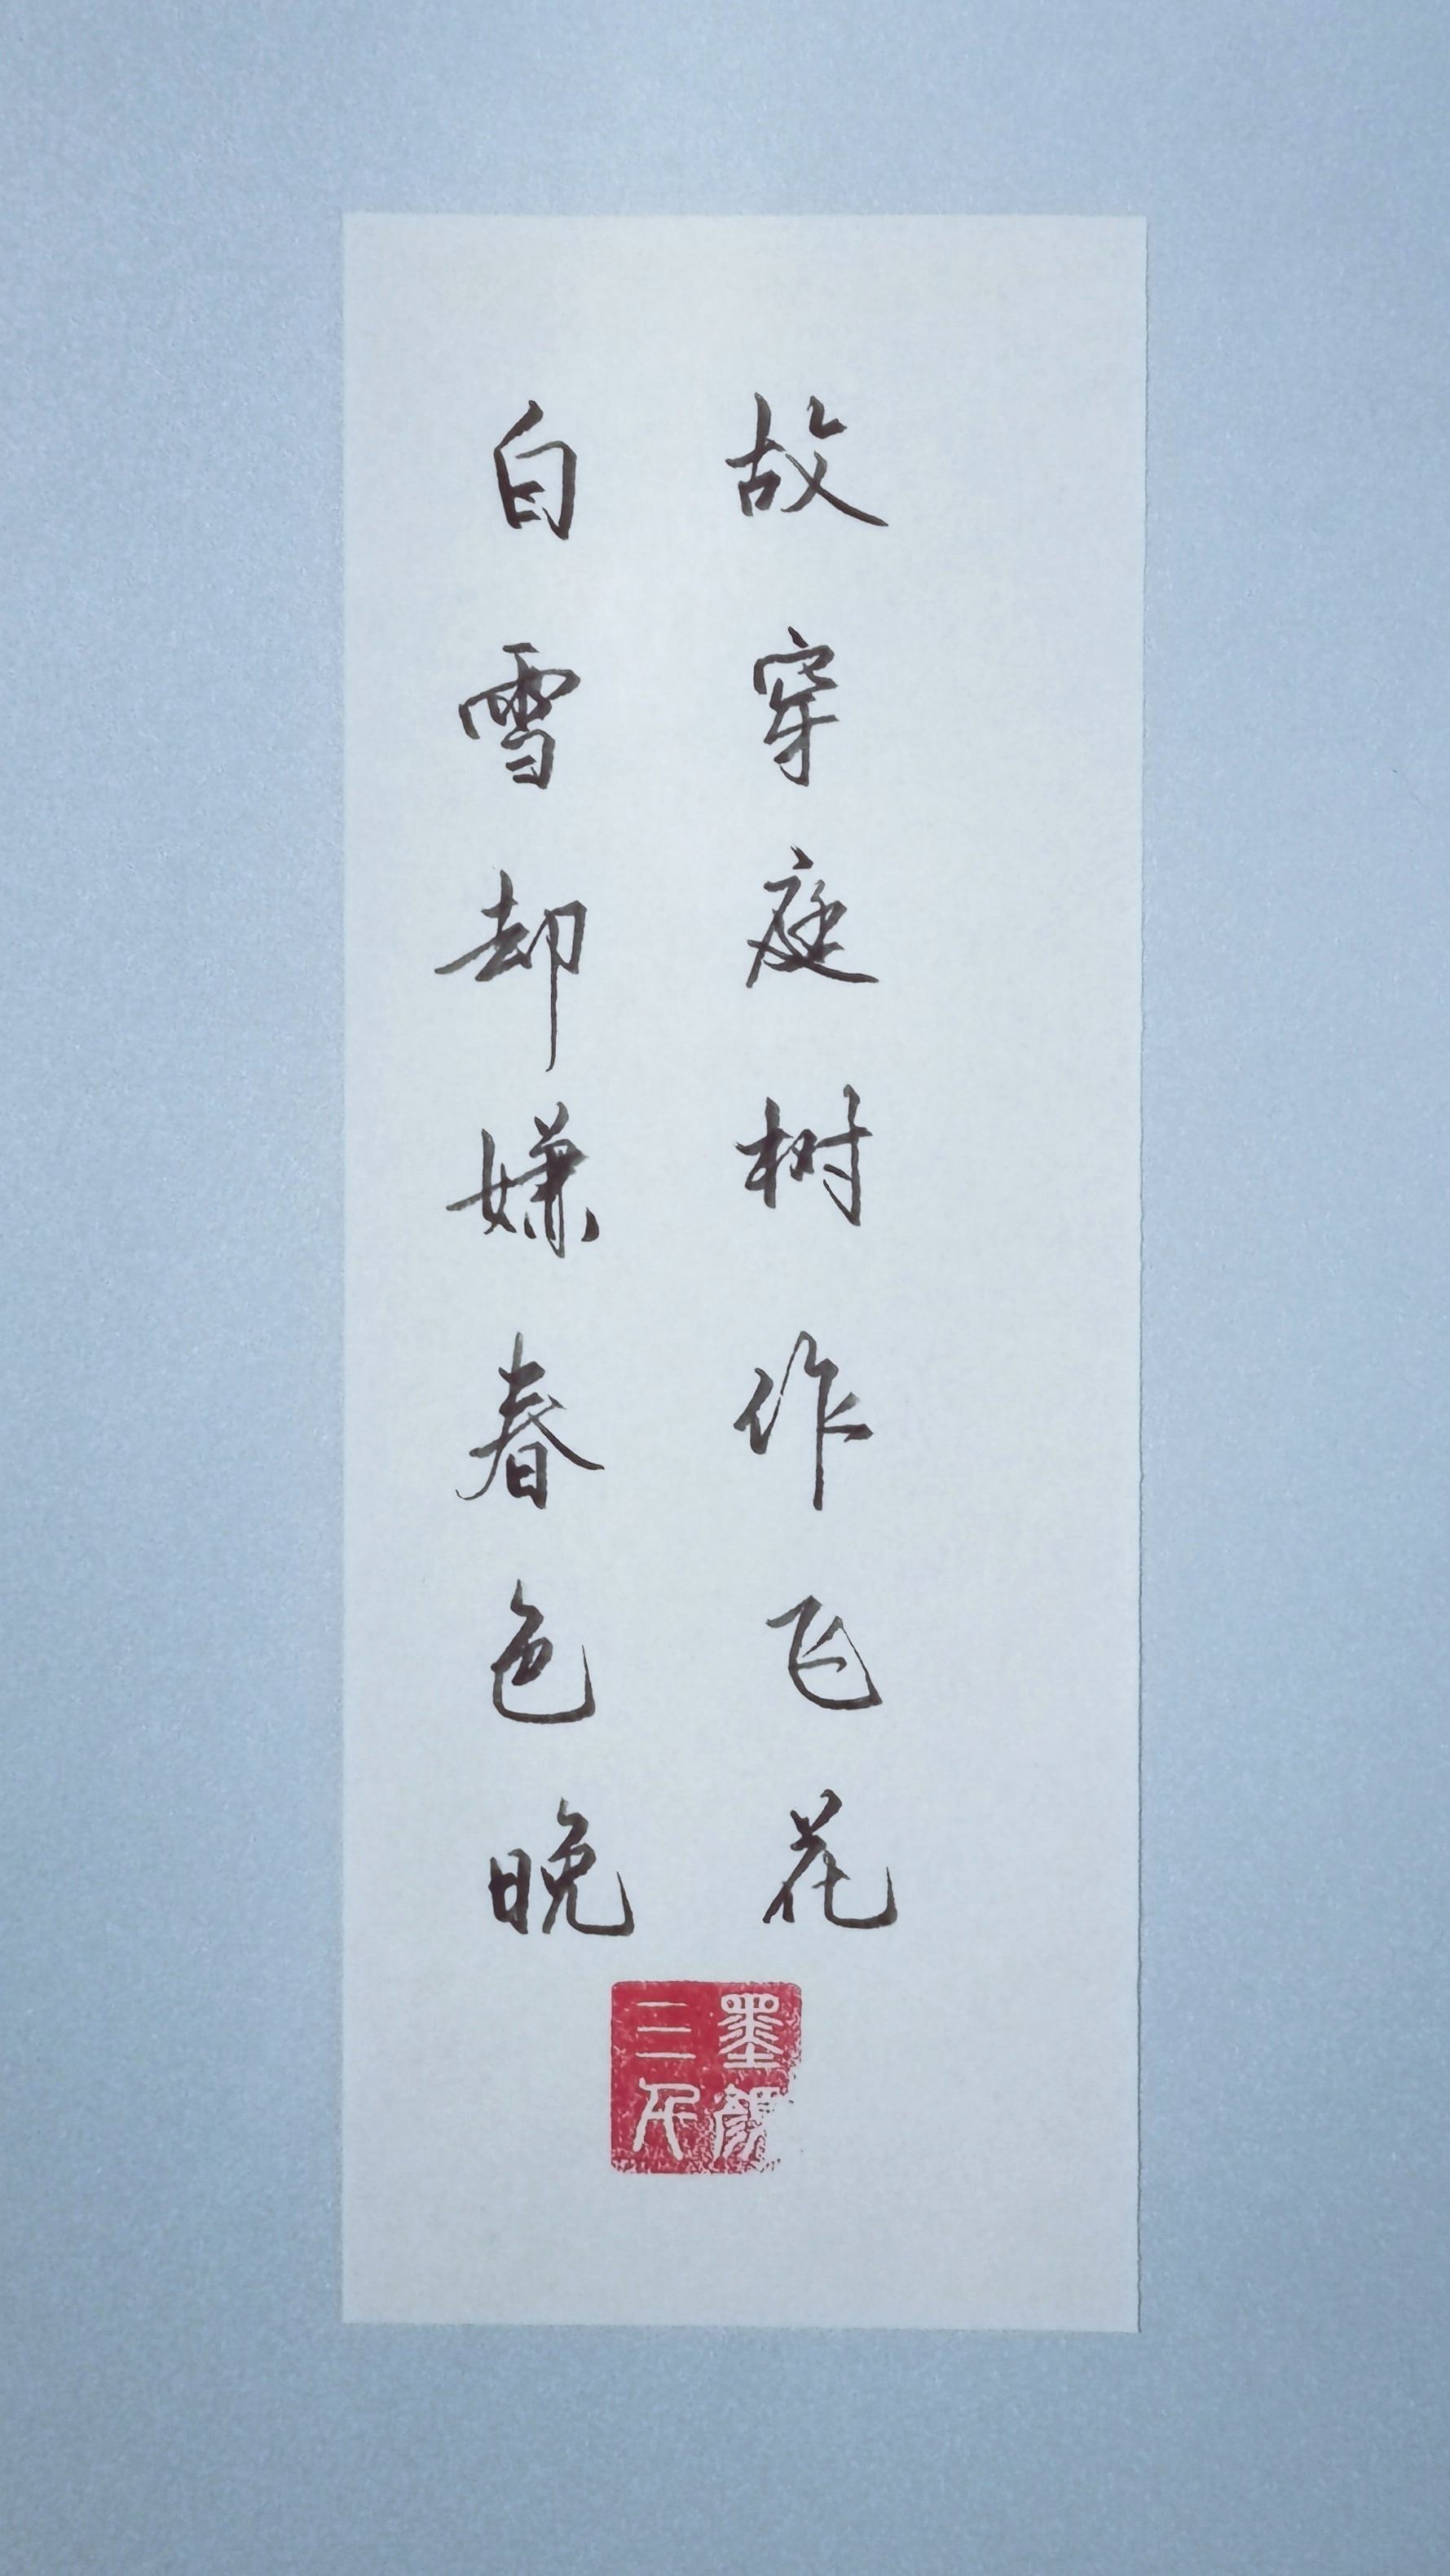 白雪却嫌春色晚
故穿庭树作飞花
墨
三